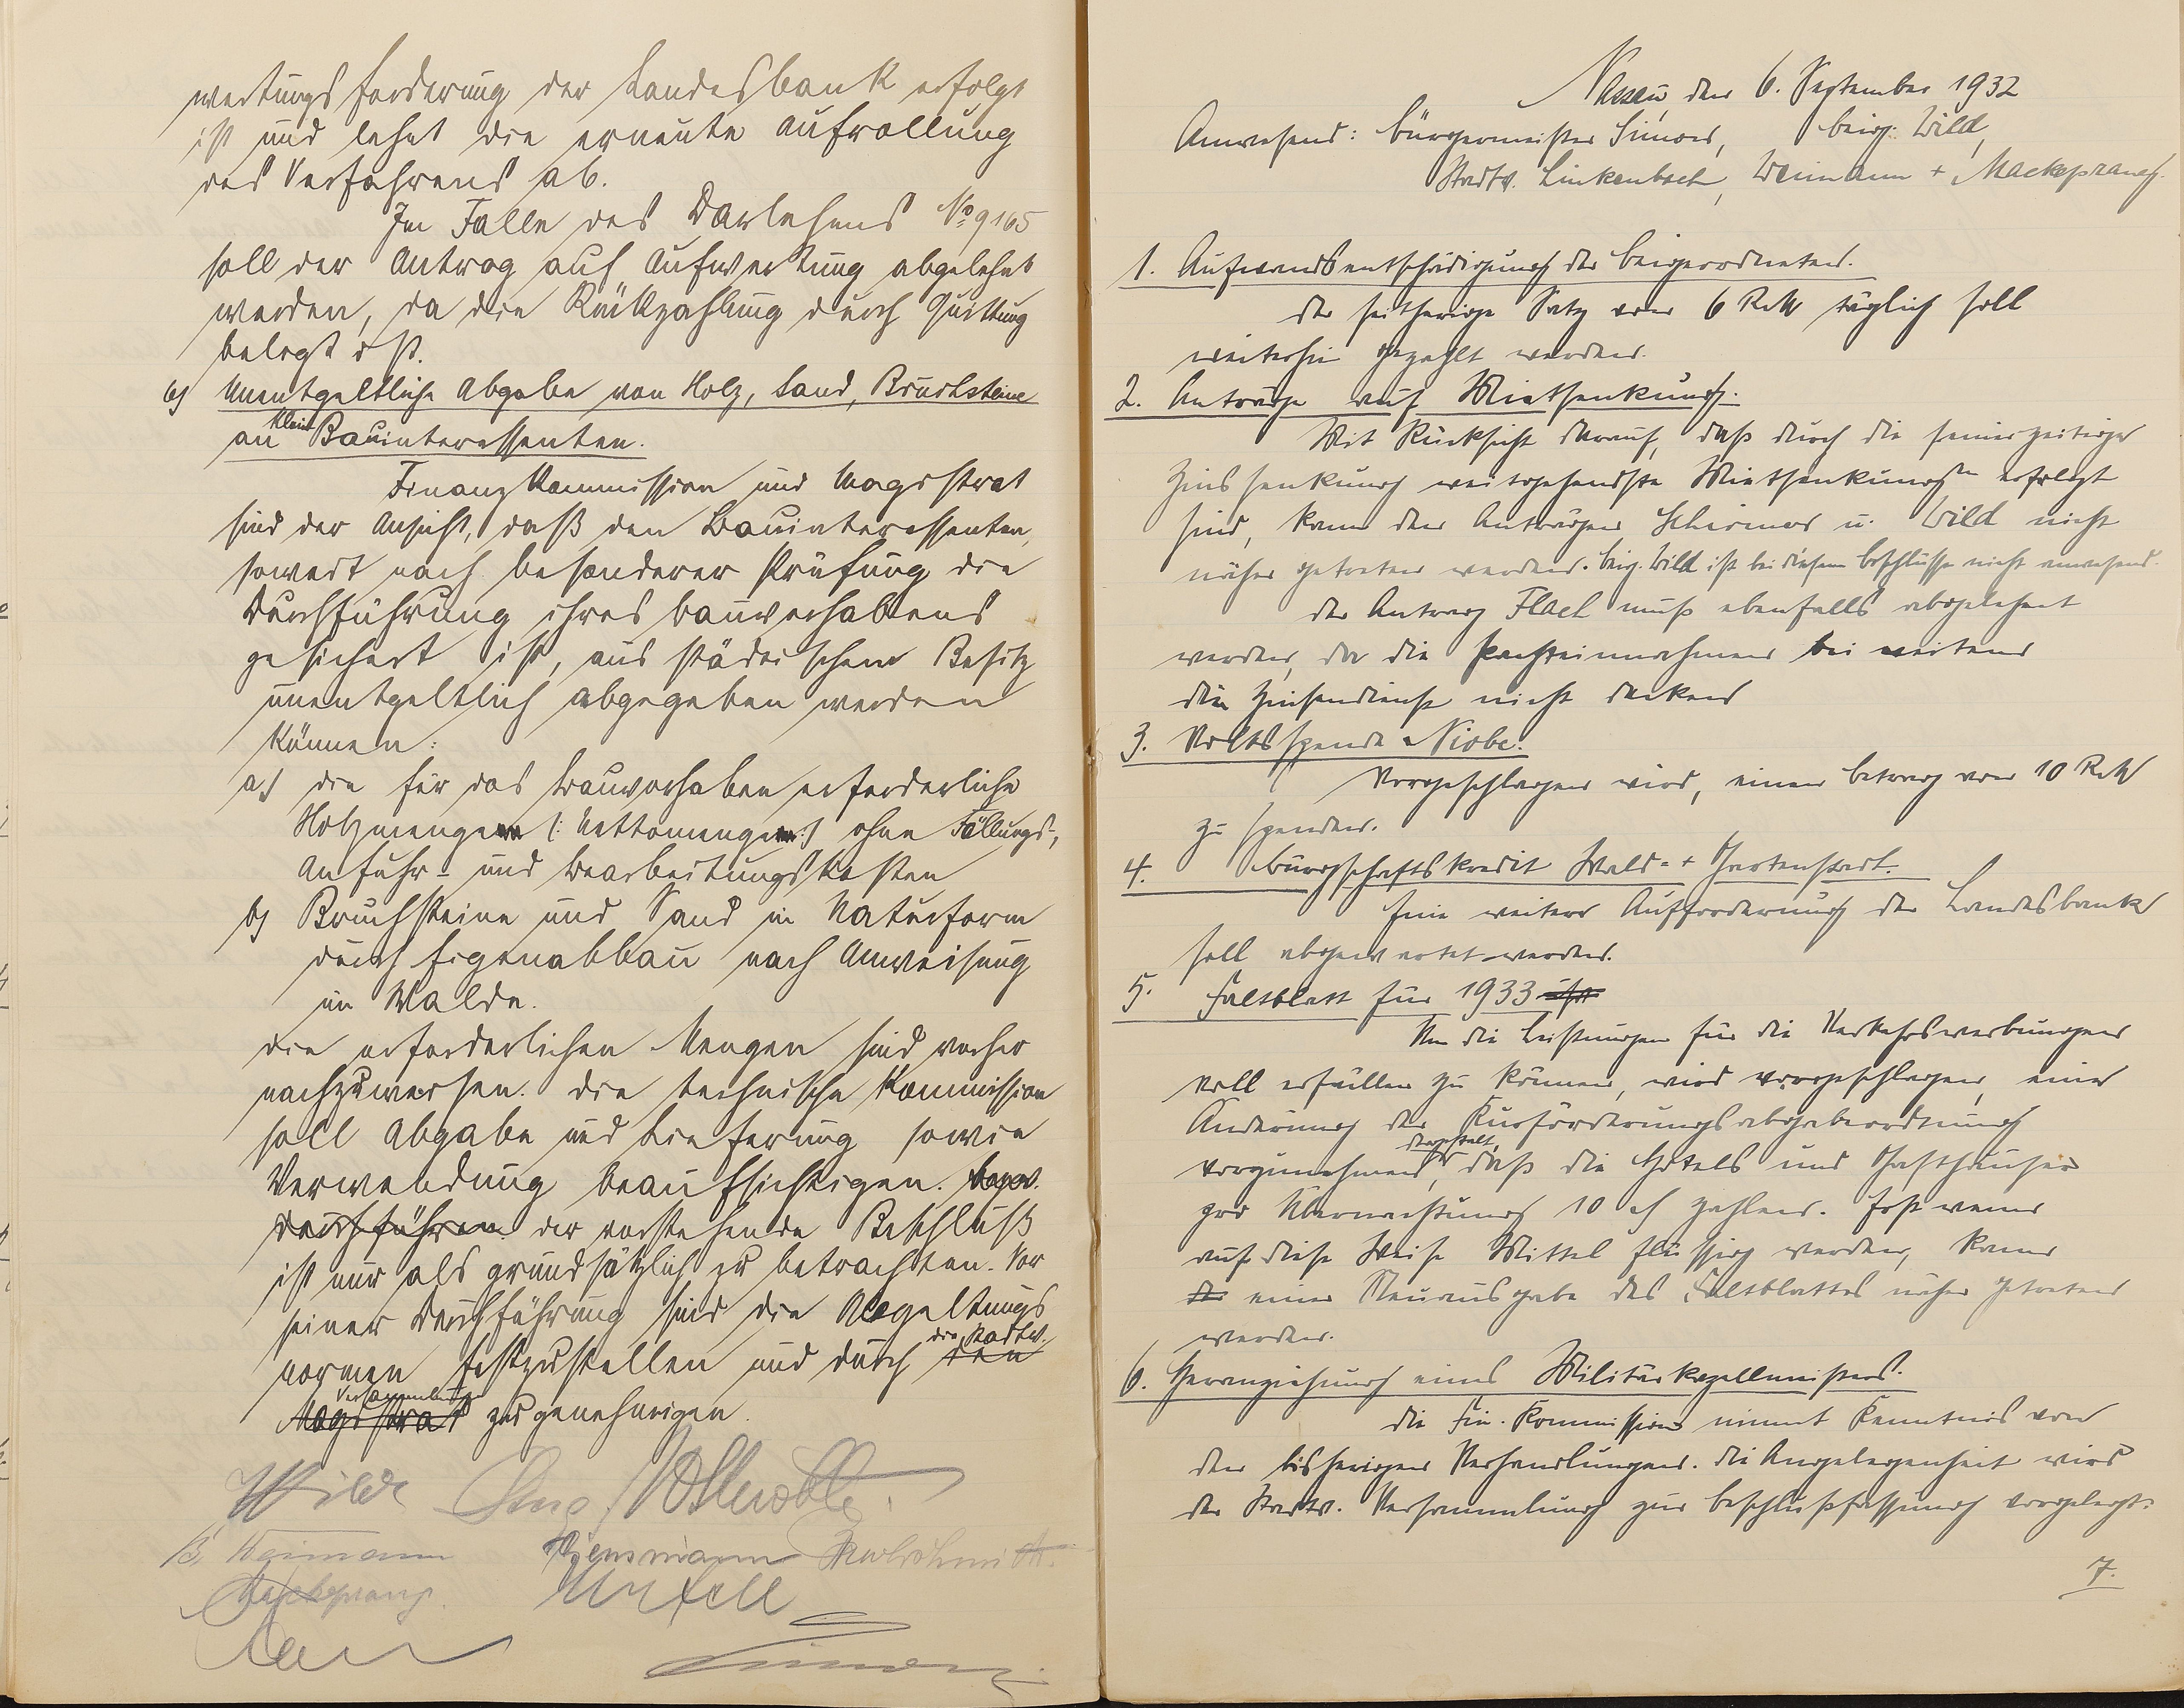 wertungsforderung der Landesbank erfolgt
ist und lehnt die erneute Aufrollung
des Verfahrens ab.
Im Falle des Darlehens No 9165
soll der Antrag auf Aufwertung abgelehnt
werden, da die Rückzahlung durch Quittung
belegt ist.
6) Unentgeltliche Abgabe von Holz, Sand, Bruchsteine
klein
an Bauinteressenten.
Finanzkommission und Magistrat
sind der Ansicht, daß den Bauinteressenten,
soweit nach besonderer Prüfung die
Durchführung ihres Bauvorhabens
gesichert ist, aus städtischem Besitz
unentgeltlich abgegeben werden
können:
a) die für das Bauvorhaben erforderliche
Holzmenge (: Nettomenge :) ohne Fällungs-,
Anfuhr- und Bearbeitungskosten
b) Bruchsteine und Sand in Naturform
durch Eigenabbau nach Anweisung
im Walde.
Die erforderlichen Mengen sind vorher
nachzuweisen. Die technische Kommission
soll Abgabe und Lieferung sowie
Verwendung beaufsichtigen. bezw.
durchführen der vorstehende Beschluß
ist nur als grundsätzlich zu betrachten. Vor
seiner Durchführung sind die Abgeltungs
die Stadtv.
normen festzustellen und durch den
Versammlung
Magistrat zu genehmigen.
Wild
B. Weimann
Mackeprang
Unfell
Simon
Nassau, den 6. September 1932
Anwesend: Bürgermeister Simon, Beig. Wild,
Stadtv. Linkenbach, Weimann + Mackeprang.
1. Aufwandsentschädigung des Beigeordneten.
Der seitherige Satz von 6 RM täglich soll
weiterhin gezahlt werden.
2. Anträge auf Mietsenkung.
Mit Rücksicht darauf, daß durch die seinerzeitige
Zinssenkung weitgehendste Mietsenkungen erfolgt
sind, kann den Anträgen Schirmer u. Wild nicht
näher getreten werden. Beig. Wild ist bei diesem Beschlusse nicht anwesend.
Der Antrag Flach muß ebenfalls abgelehnt
werden, da die Pachteinnahmen bei weitem
den Zinsendienst nicht decken
3. Volksspende Niobe.
Vorgeschlagen wird, einen Betrag von 10 RM
zu spenden.
4. Bürgschaftskredit Wald- + Gartenstadt.
Eine weitere Aufforderung der Landesbank
soll abgewartet werden.
5. Faltblatt für 1933
Um die Leistungen für die Verkehrswerbungen
voll erfüllen zu können, wird vorgeschlagen, eine
Änderung der Kurförderungsabgabeordnung
dergestalt
vorzunehmen, daß die Hotels und Gasthäuser
pro Übernachtung 10 Pf zahlen. Erst wenn
auf diese Weise Mittel flüssig werden, kann
der einer Neuausgabe des Faltblattes näher getreten
werden.
6. Heranziehung eines Militärkapellmeisters.
Die Fin. Kommission nimmt Kenntnis von
den bisherigen Verhandlungen. Die Angelegenheit wird
der Stadtv. Versammlung zur Beschlußfassung vorgelegt.
7.